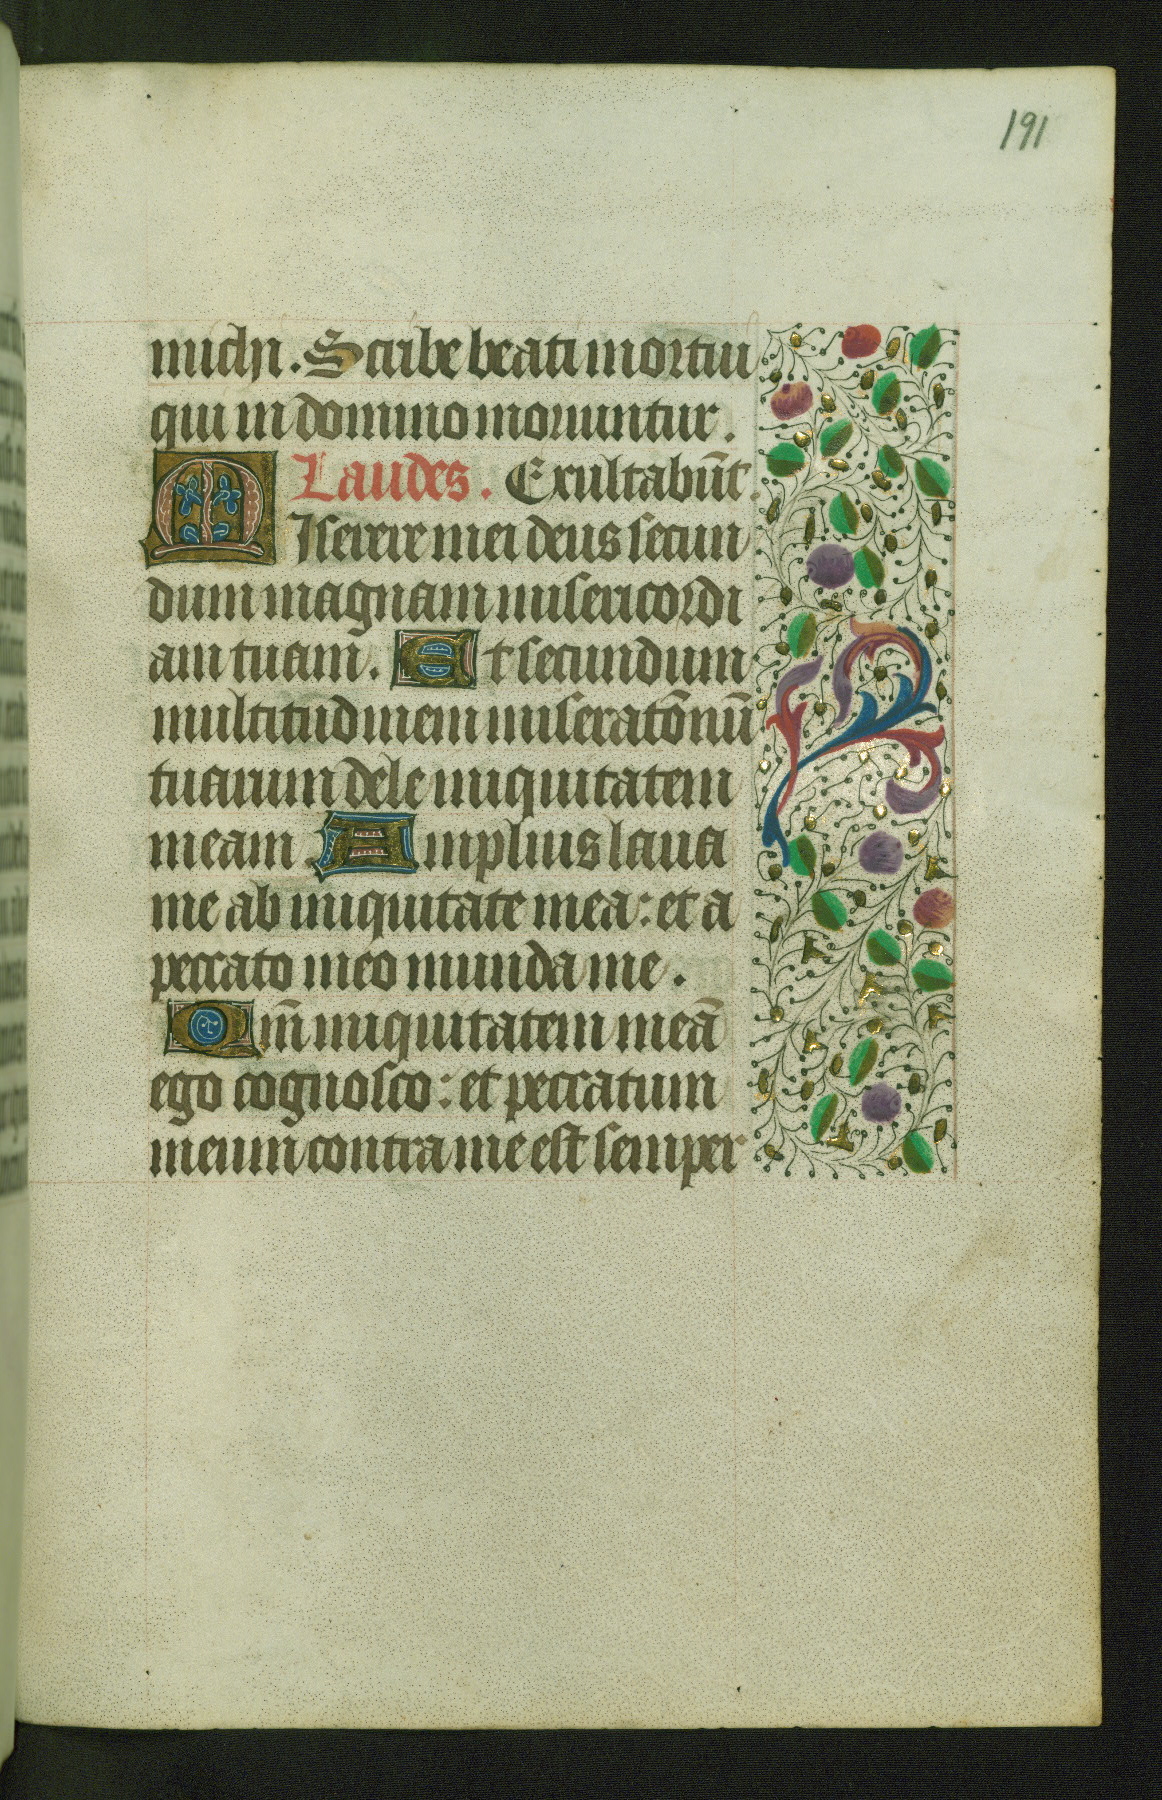 191
michi. Scribe beati mortui
qui in domino moriuntur.
Laudes. Exultabūt.
Miserere mei deus secun
dum magnam misericordi
am tuam. Et secundum
multitudinem miseratōnū
tuarum dele iniquitatem
meam. Amplius laua
me ab iniquitate mea: et a
peccato meo munda me.
Qm̄ iniquitatem meā
ego cognosco: et peccatum
meum contra me est semper